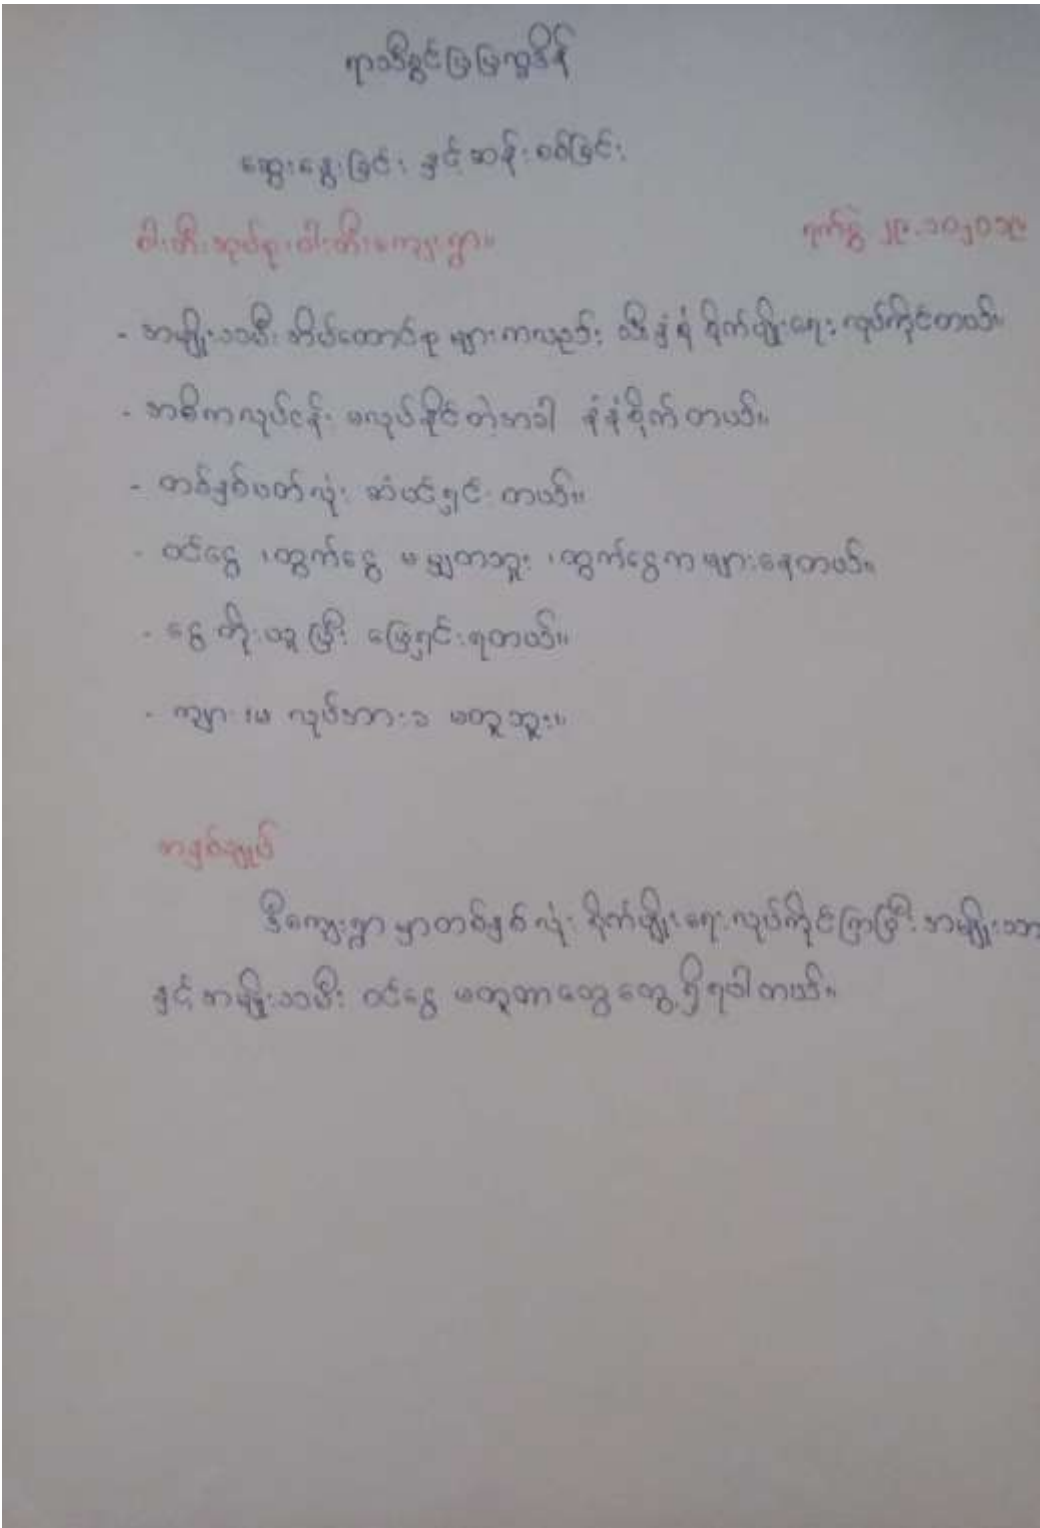 ရာသီခွင်ပြပြက္ခဒိန်
ဆွေးနွေးခြင်း နှင့် ဆန်းစစ်ခြင်း
ဝါးတီးအုပ်စု၊ ဝါးတီးကျေးရွာ။ ရက်စွဲ ၂၉.၁၀၂၀၁၉
- အမျိုးသမီး အိမ်ထောင်စု များကလည်း သီးနှံ စိုက်ပျိုးရေး လုပ်ကိုင်တယ်။
- အဓိကလုပ်ငန်း မလုပ်နိုင်တဲ့အခါ နှံနှံစိုက်တယ်။
- တစ်နှစ်ပတ်လုံး ဆံပင်ရှင်းတယ်။
- ဝင်ငွေ ၊ထွက်ငွေ မမျှတဘူး ၊ထွက်ငွေကများနေတယ်။
- ငွေတိုးယူပြီး ဖြေရှင်းရတယ်။
- ကျား၊မ လုပ်အားခ မတူဘူး။
အနှစ်ချုပ်
ဒီကျေးရွာမှာတစ်နှစ်လုံး စိုက်ပျိုးရေးလုပ်ကိုင်ကြပြီး အမျိုးသာ
နှင့် အမျိုးသမီး ဝင်ငွေ မတူတာတွေတွေ့ရှိရပါတယ်။